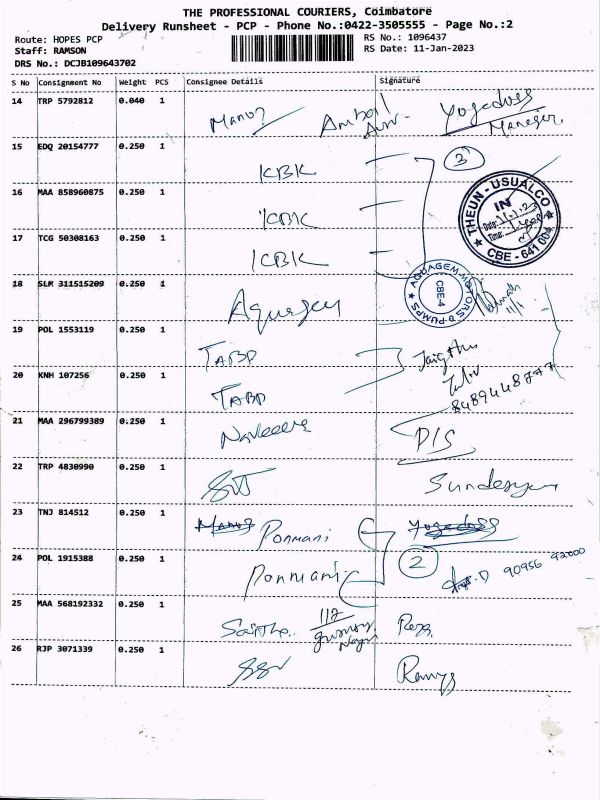 THE PROFESSIONAL COURIERS, Coimbatore
Delivery Runsheet - PCP - Phone No.:0422-3505555 - Page No.:2
Route: HOPES PCP RS No.: 1096437
Staff: RAMSON RS Date: 11-Jan-2023
DRS No.: DCJB109643702
S No Consignment No Weight PCS Consignee Details Signature
14 TRP 5792812 0.040 1 Manoj Yogedoss
Manager
15 EDQ 20154777 0.250 1 KBK 3
16 MAA 858960875 0.250 1 KBK
THEUN-USUALCO
IN
Date:
Time:
CBE - 641 004
17 TCG 50308163 0.250 1 KBK
18 SLM 311515209 0.250 1
AQUAGEM MOTORS & PUMPS
CBE4
19 POL 1553119 0.250 1 TABP
20 KNH 107256 0.250 1 TABP
8489448777
21 MAA 296799389 0.250 1 P/S
22 TRP 4830990 0.250 1
23 TNJ 814512 0.250 1 Manoj Ponmani Yogedoss
24 POL 1915388 0.250 1 Ponmani 2 90956 92000
25 MAA 568192332 0.250 1 112
26 RJP 3071339 0.250 1